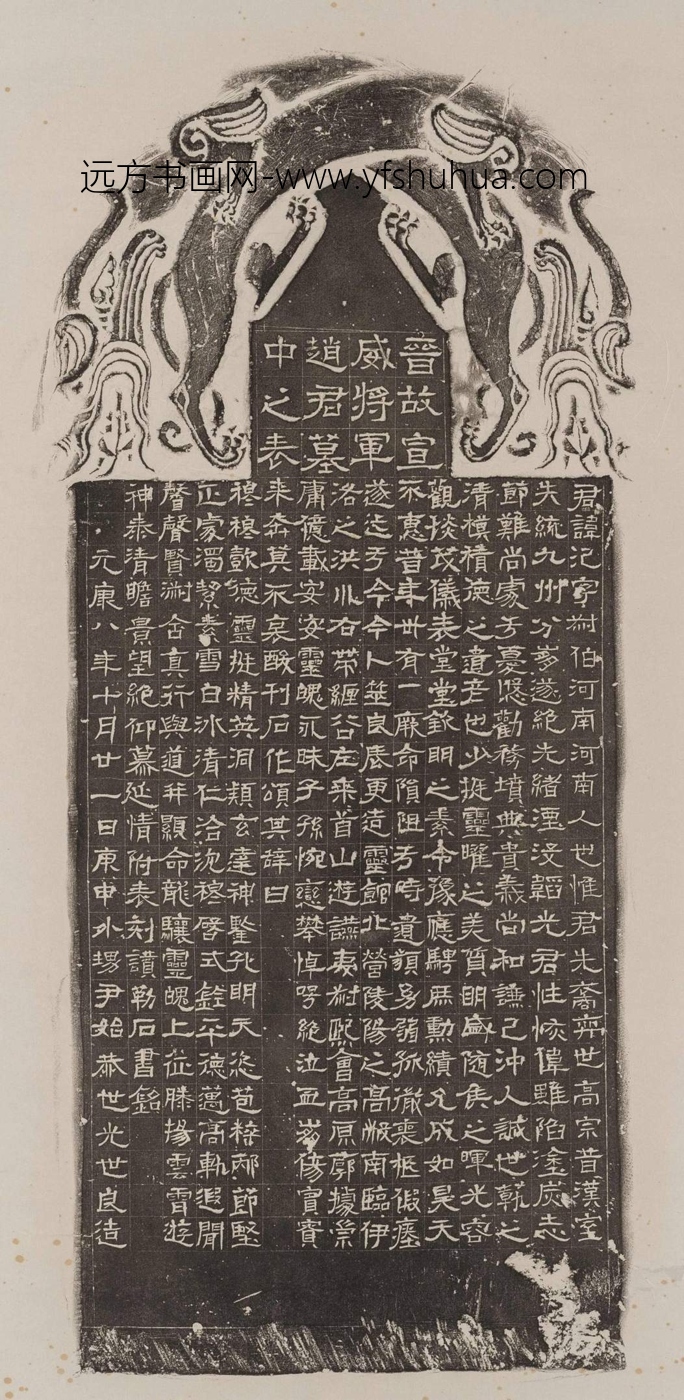 远方书画网-www.yfshuhua.com
晉故宣
威將軍
趙君墓
中之表
君諱氾字伯河南河南人也惟君先裔弈世高宗昔漢室
失統九州分崩遂絕先緒湮沒韜光君性恢偉雖陷塗炭志
節難尚處于憂愍勸務墳典貴義尚和謙己沖人誠世之
清模積德之遺老也少挺靈曜之美質明隨侯之暉光容
觀掞茂儀表堂堂欽明之素令豫應騁勳績允成如昊天
不惠昔年卅有一厥命隕阻于時遺類幼弱孤微喪柩假瘞
遂迄于今今卜筮良辰更造靈館北營陵陽之高敞南臨伊
洛之洪川右帶纏谷左乘首山遊讌夷熙會高原廓據崇
庸億載安安靈魄永昧子孫惋戀攀悼號絕泣血崩傷賓賓
來奔莫不哀酸刊石作頌其辭曰
穆穆懿德靈挺精英洞類玄達神鑒孔明天恣苞梓邴節堅
正蒙濁絜素雪白冰清仁洽沈穆啓式銓平德邁高軌遐聞
馨聲賢淵含真行與道并顯命龍驤靈魄上征騰揚雲霄遊
神泰清瞻貴望絕仰慕延情附表刻讚勒石書銘
元康八年十月廿一日庚申外甥尹始恭世光世良造